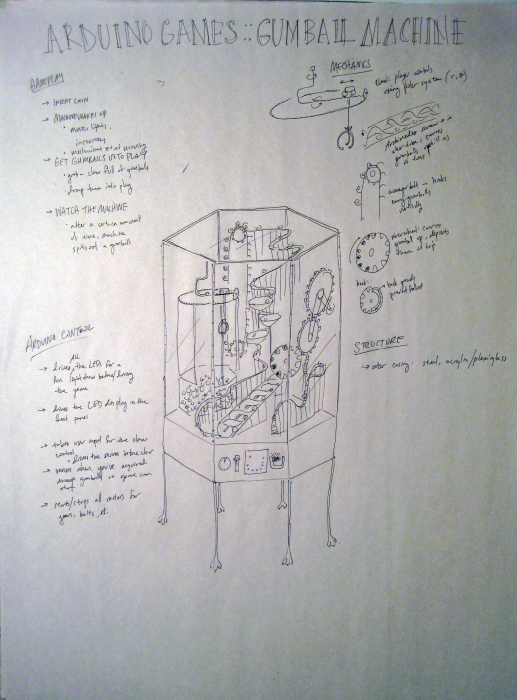 ARDUINO GAMES :: GUMBALL MACHINE
GAMEPLAY
→ INSERT COIN
→ MACHINE WAKES UP
• music, lights,
• mechanisms start moving
→ GET GUMBALLS INTO PLAY
• grab claw full of gumballs
• dump them into play
→ WATCH THE MACHINE
• after a certain amount
of time, machine
spits out a gumball
MECHANICS
claw: player controls
using polar system (r, θ)
Archimedes screw:
carries
gumballs
up
carry gumballs
vertically
carries
gumball up, deposits
them at top
ARDUINO CONTROL
→ drives the LEDs for a
fun light show before/during
the game
→ drives the LED display in the
front panel
→ takes user input for the claw
control
• drives the servos in the claw
→ senses when you've acquired
enough gumballs
→ starts/stops all motors for
gears, belts, etc.
STRUCTURE
→ outer casing: steel, acrylic/plexiglass